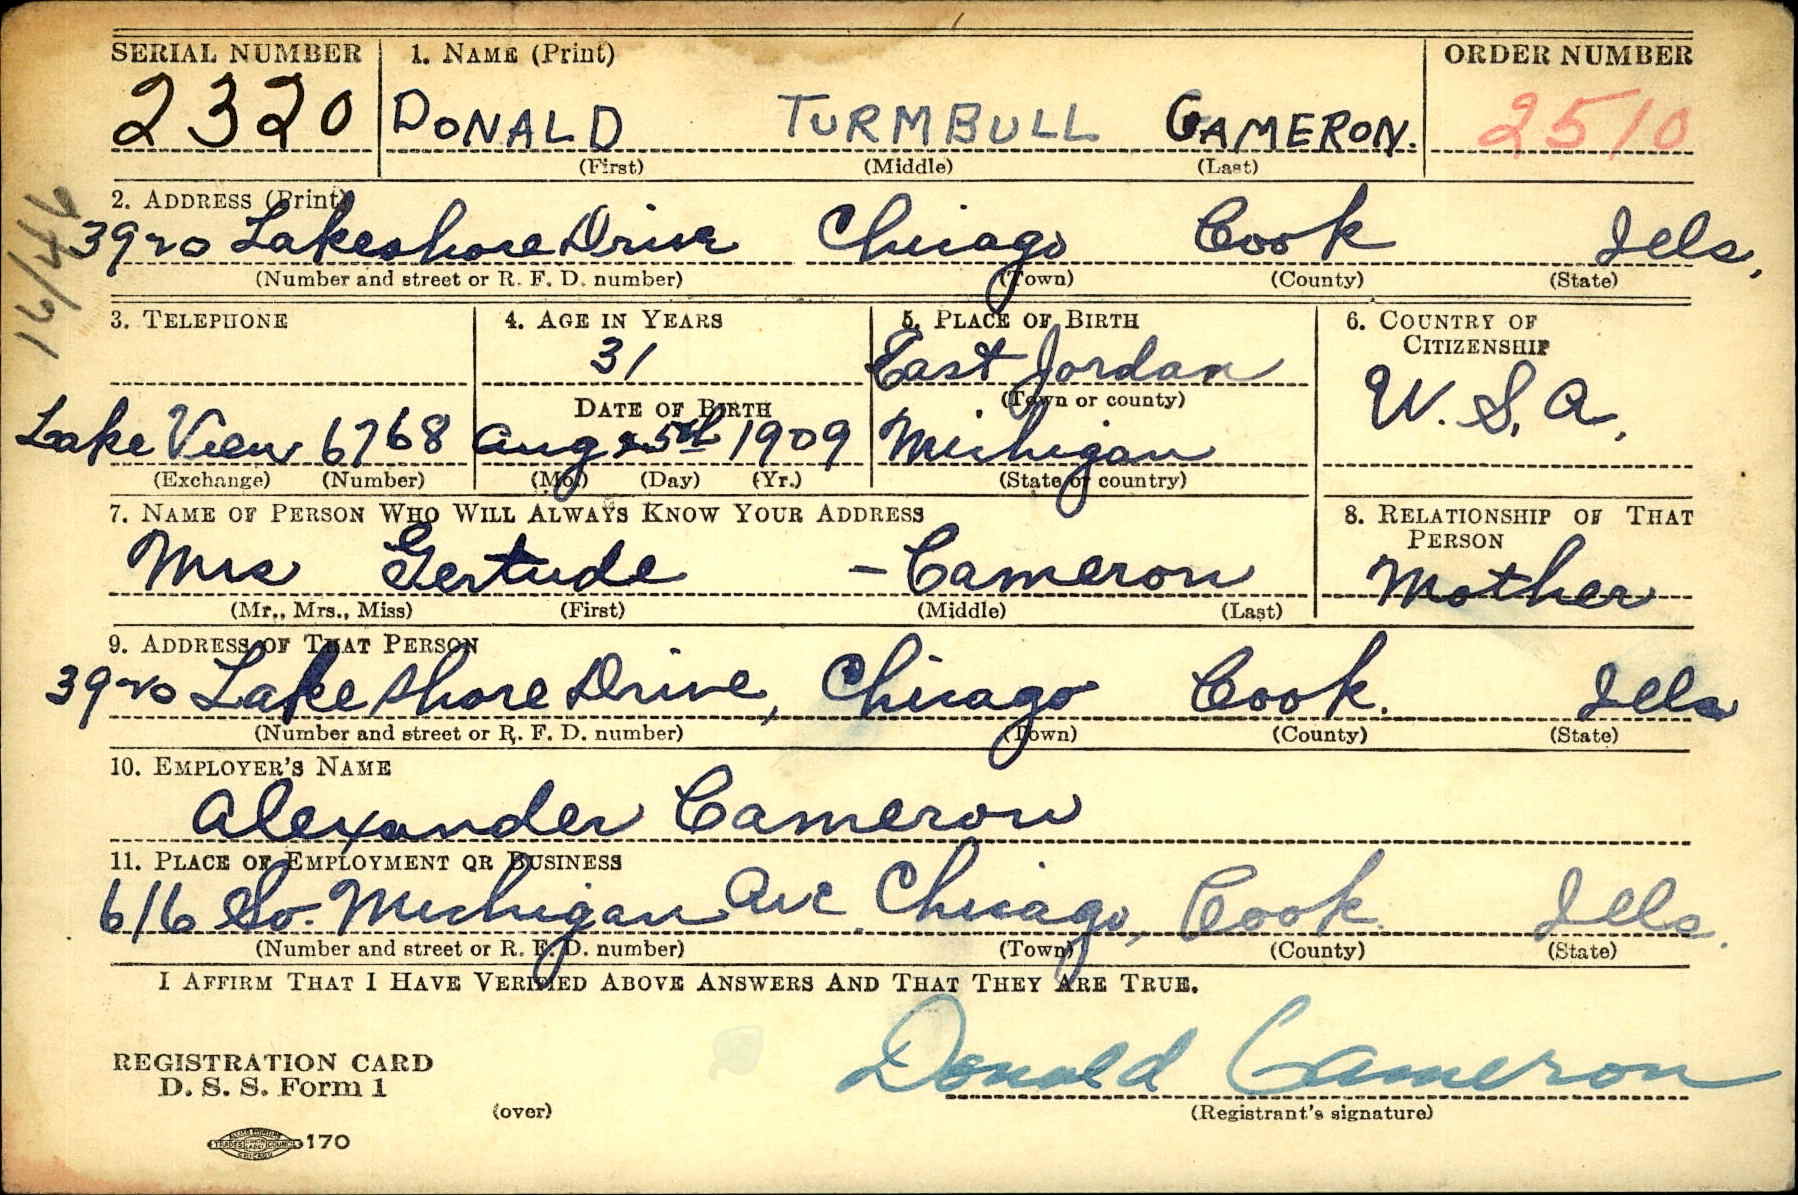 SERIAL NUMBER 1. NAME (Print) ORDER NUMBER
2320 DONALD TURMBULL CAMERON. 2510
(First) (Middle) (Last)
2. ADDRESS (Print)
3920 Lakeshore Drive Chicago Cook Ills.
(Number and street or R. F. D. number) (Town) (County) (State)
16/446
3. TELEPHONE 4. AGE IN YEARS 5. PLACE OF BIRTH 6. COUNTRY OF CITIZENSHIP
31 East Jordan U. S. A.
DATE OF BIRTH (Town or county)
Lake View 6768 Aug 25th 1909 Michigan
(Exchange) (Number) (Mo.) (Day) (Yr.) (State or country)
7. NAME OF PERSON WHO WILL ALWAYS KNOW YOUR ADDRESS 8. RELATIONSHIP OF THAT PERSON
Mrs Gertude - Cameron Mother
(Mr., Mrs., Miss) (First) (Middle) (Last)
9. ADDRESS OF THAT PERSON
3920 Lake Shore Drive, Chicago Cook. Ills
(Number and street or R. F. D. number) (Town) (County) (State)
10. EMPLOYER'S NAME
Alexander Cameron
11. PLACE OF EMPLOYMENT OR BUSINESS
616 So. Michigan Ave. Chicago, Cook. Ills.
(Number and street or R. F. D. number) (Town) (County) (State)
I AFFIRM THAT I HAVE VERIFIED ABOVE ANSWERS AND THAT THEY ARE TRUE.
Donald Cameron
REGISTRATION CARD
D. S. S. Form 1
(over) (Registrant's signature)
170